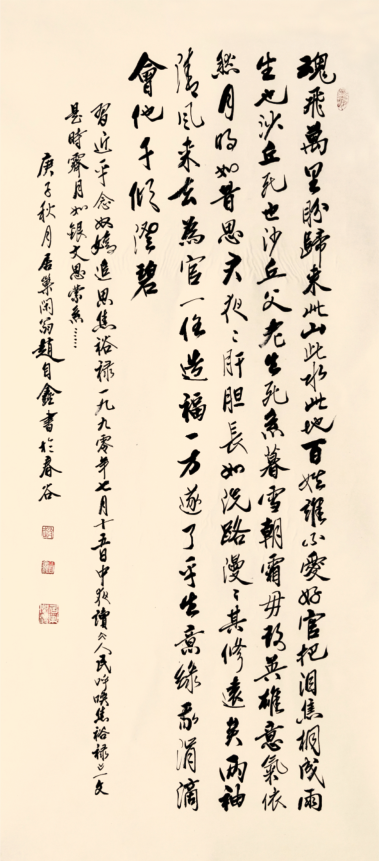 魂飛萬里盼歸来此山此水此地百姓誰不愛好官把泪焦桐成雨
生也沙丘死也沙丘父老生死系暮雪朝霜毋改英雄意氣依
然月明如昔思君夜々肝胆長如洗路漫々其修遠矣两袖
清風来去為官一任造福一方遂了平生意绿我涓滴
會他千顷澄碧
習近平念奴嬌追思焦裕禄一九九零年七月十五日中夜讀《人民呼唤焦裕禄》一文
是時霽月如銀文思縈系……
庚子秋月居巢闲翁趙自鑫書於春谷